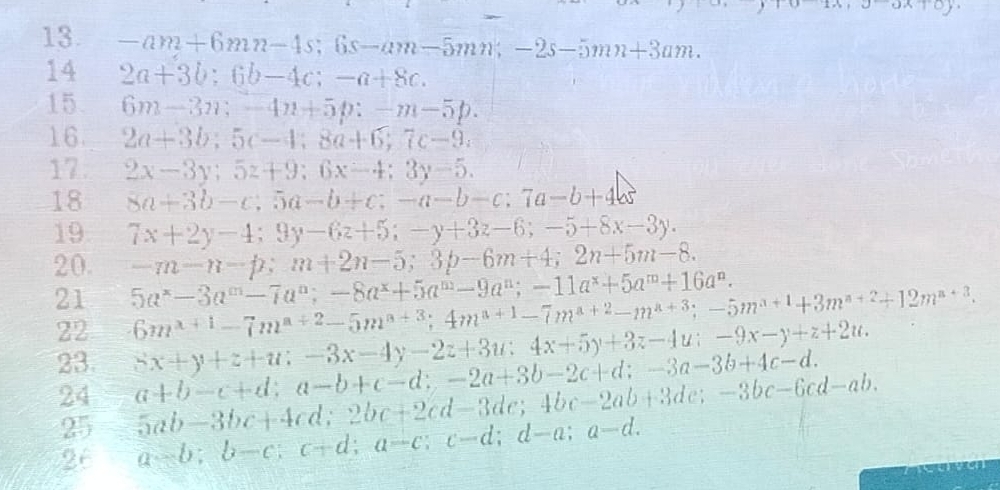 13. -am+6mn-4s; 6s-am-5mn; -2s-5mn+3am.
14 2a+3b; 6b-4c; -a+8c.
15. 6m-3n; -4n+5p; -m-5p.
16. 2a+3b; 5c-4; 8a+6; 7c-9.
17. 2x-3y; 5z+9; 6x-4; 3y-5.
18 8a+3b-c; 5a-b+c; -a-b-c; 7a-b+4
19 7x+2y-4; 9y-6z+5; -y+3z-6; -5+8x-3y.
20. -m-n-p; m+2n-5; 3p-6m+4; 2n+5m-8.
21 5aˣ-3aᵐ-7aⁿ; -8aˣ+5aᵐ-9aⁿ; -11aˣ+5aᵐ+16aⁿ.
22 6mᵃ⁺¹-7mᵃ⁺²-5mᵃ⁺³; 4mᵃ⁺¹-7mᵃ⁺²-mᵃ⁺³; -5mᵃ⁺¹+3mᵃ⁺²+12mᵃ⁺³.
23. 8x+y+z+u; -3x-4y-2z+3u; 4x+5y+3z-4u; -9x-y+z+2u.
24 a+b-c+d; a-b+c-d; -2a+3b-2c+d; -3a-3b+4c-d.
25 5ab-3bc+4cd; 2bc+2cd-3de; 4bc-2ab+3de; -3bc-6cd-ab.
26 a-b; b-c; c+d; a-c; c-d; d-a; a-d.